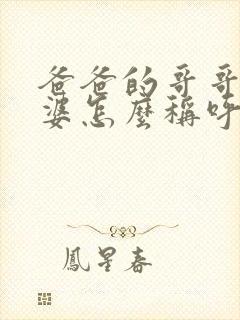 爸爸的哥哥
婆怎麼稱呼
鳳星春